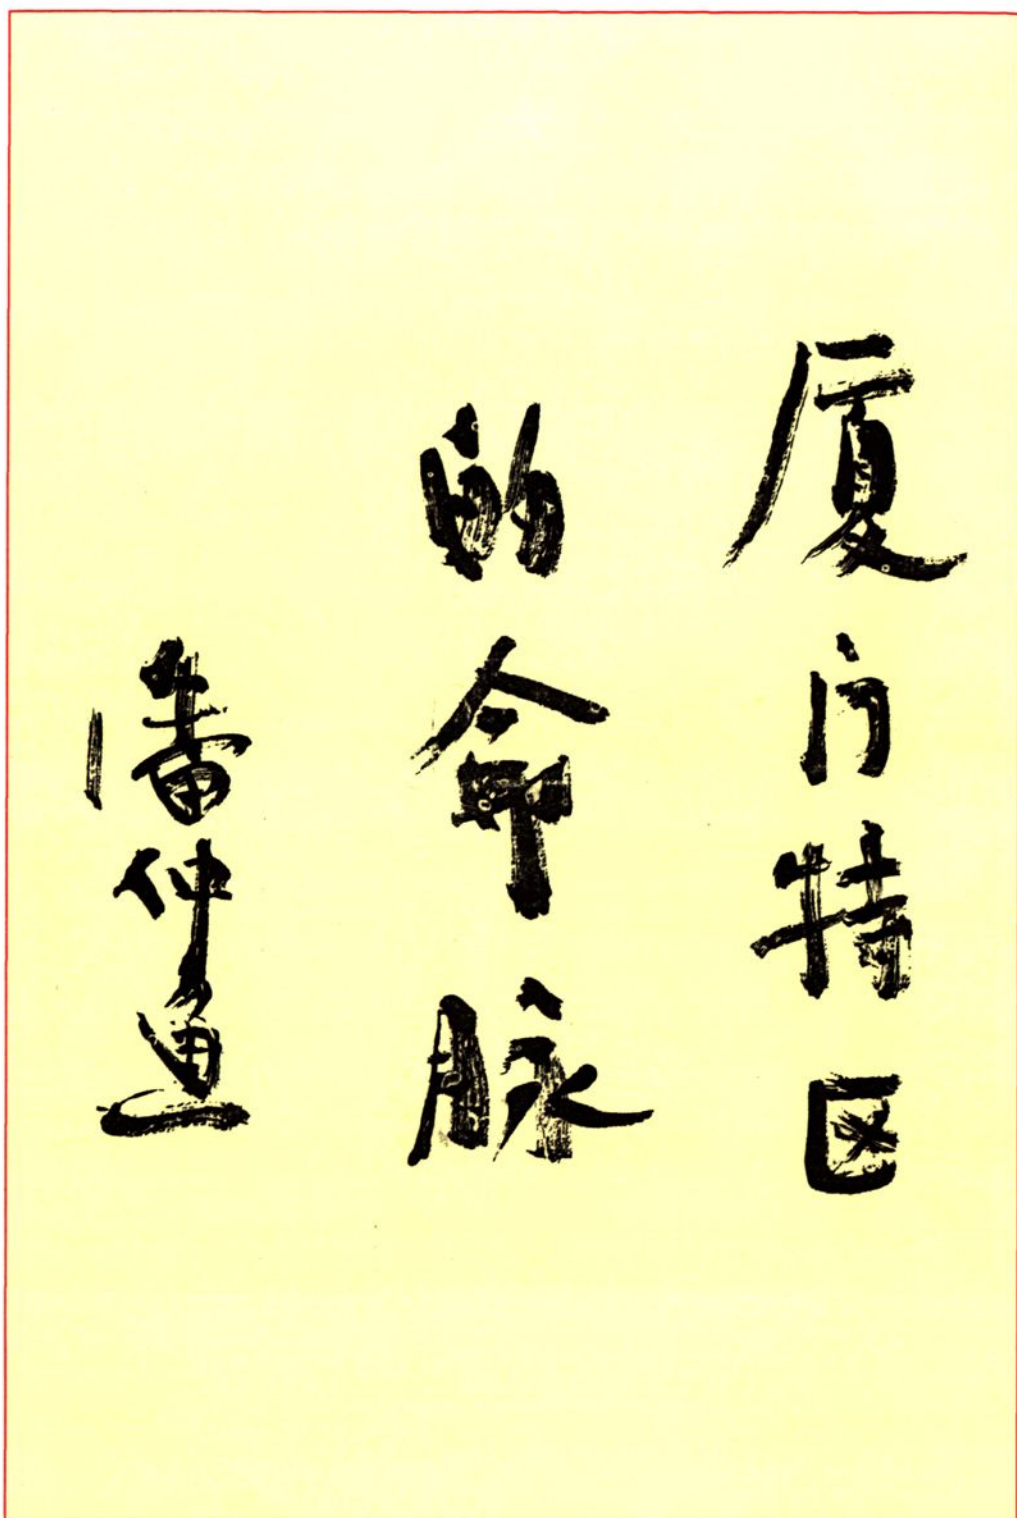 厦门特区
的命脉
潘仲鱼